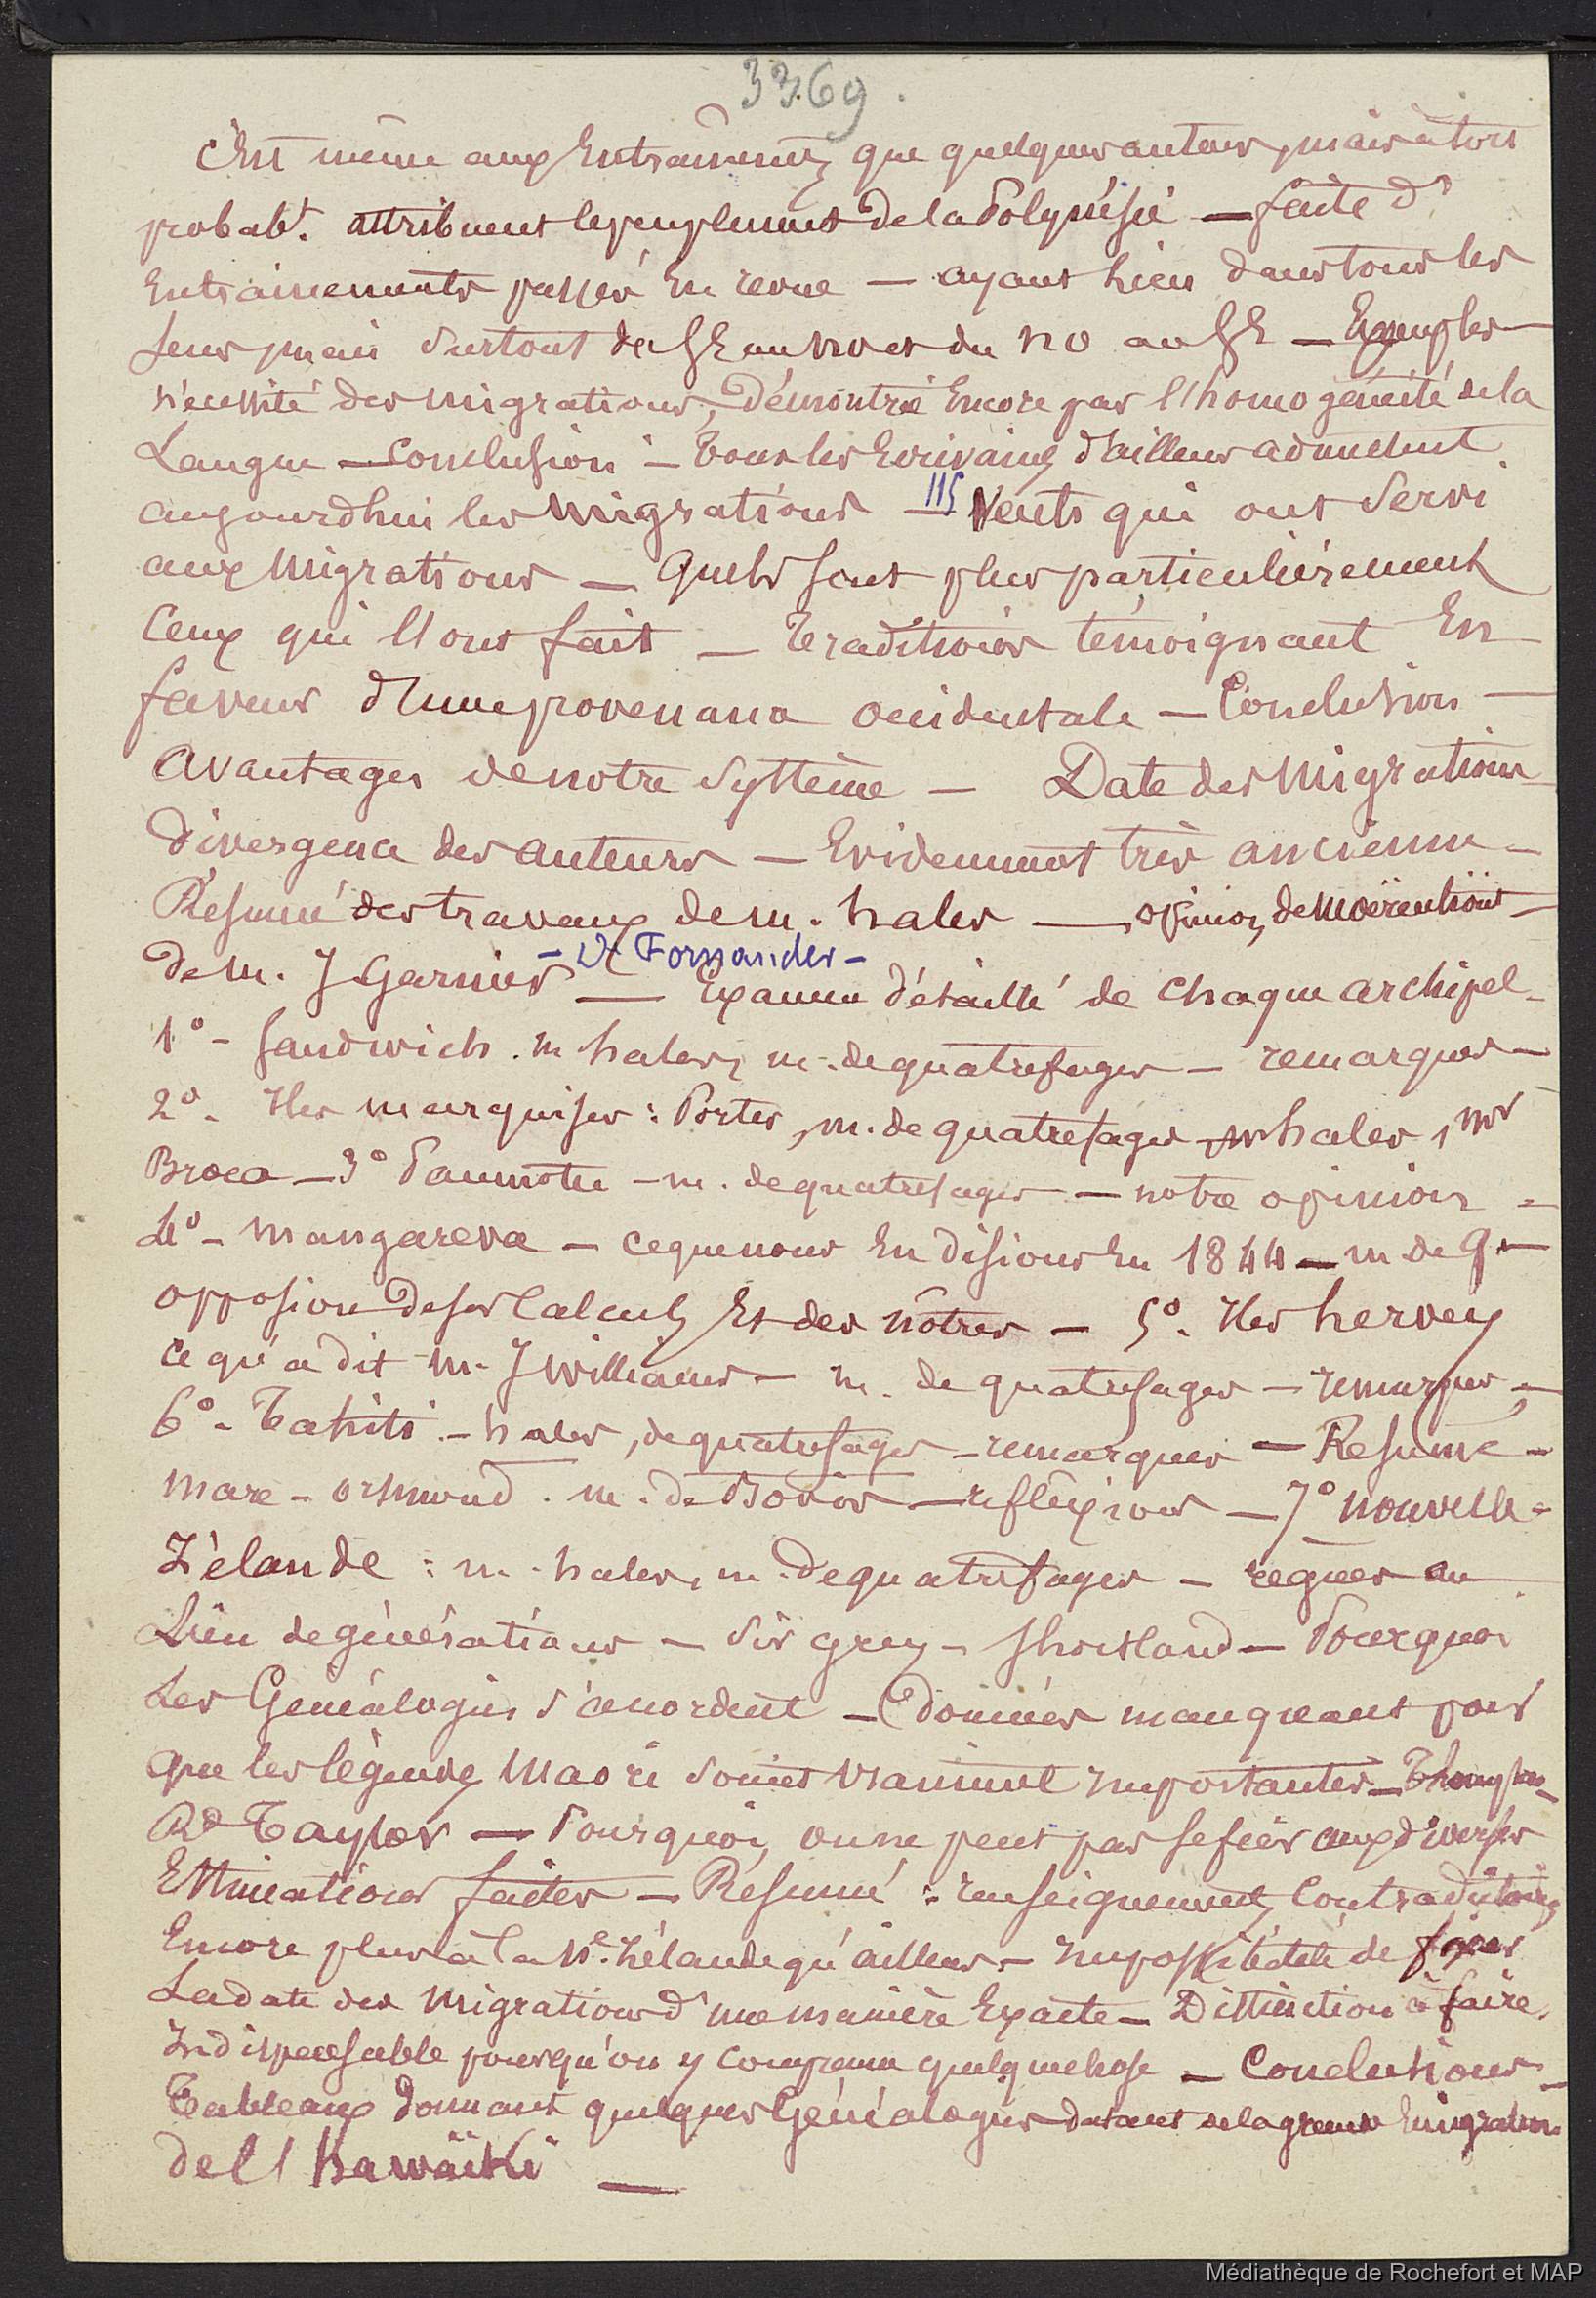 3369.
C'est même aux Entrainements que quelques auteurs, mais à tort
probabt. attribuent le peuplement de la Polynésie — faits d'
Entrainements passés En revue — ayant lieu dans tous les
sens mais surtout de SE au NO et du NO au SE — Exemples —
nécessité des Migrations, Démontrée Encore par l'homogénéité de la
Langue — Conclusion — Tous les Ecrivains d'ailleurs admettent
aujourdhui les Migrations — 115 Vents qui ont servi
aux Migrations — Quels sont plus particulièrement
Ceux qui l'ont fait — Traditions témoignant En
faveur d'une provenance occidentale — Conclusion —
Avantages de notre Système — Date des Migrations
Divergence des auteurs — Evidemment très ancienne —
Résumé des travaux de M. hales — opinion de Moërenhoüt —
– De Fornander –
De M. J Garnier — Examen détaillé de chaque archipel –
1° – Sandwich. M hales, M. de quatrefages — remarques —
2° – Iles Marquises : Porter, M. de quatrefages, hales, Mr
Broca – 3° Paumotu – M. de quatrefages — notre opinion –
4° – Mangareva – ce que nous En disions En 1844 — M. de Q. —
opposion de ses Calculs Et des nôtres – 5°. Iles hervey
ce qu'a dit M. J Williams – M. de quatrefages – remarques –
6° – Tahiti – hales, de quatrefages – remarques — Résumé –
Mare – ormond. M. de Bovis — reflexions — 7° Nouvelle –
Zélande : M. hales, M. de quatrefages – règnes au
Lieu de générations – Sir grey – Shortland — Pourquoi
Les Généalogies s'accordent — Données manquant pour
que les légendes Maori soient vraiment importantes — Thompson –
Rd Taylor — Pourquoi on ne peut pas se fier aux diverses
Estimations faites — Résumé : renseignements Contradictoires
Encore plus à la Nlle. Zélande qu'ailleurs – impossibilité de fixer
La date des Migrations d'une manière Exacte – Distinction à faire,
Indispensable pour qu'on y comprenne quelque chose — Conclusions –
Tableaux donnant quelques Généalogies datant de la grande Emigration
de l'hawaïki —
Médiathèque de Rochefort et MAP